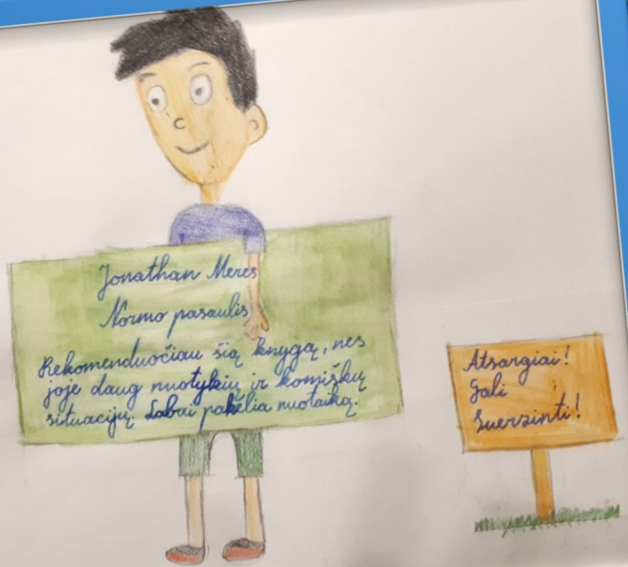 Jonathan Meres
Normo pasaulis
Rekomenduočiau šią knygą, nes
joje daug nuotykių ir komiškų
situacijų. Labai pakelia nuotaiką.
Atsargiai!
Gali
Suerzinti!